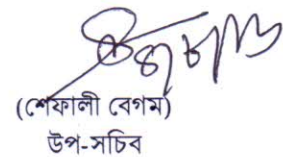 (শেফালী বেগম)
উপ-সচিব